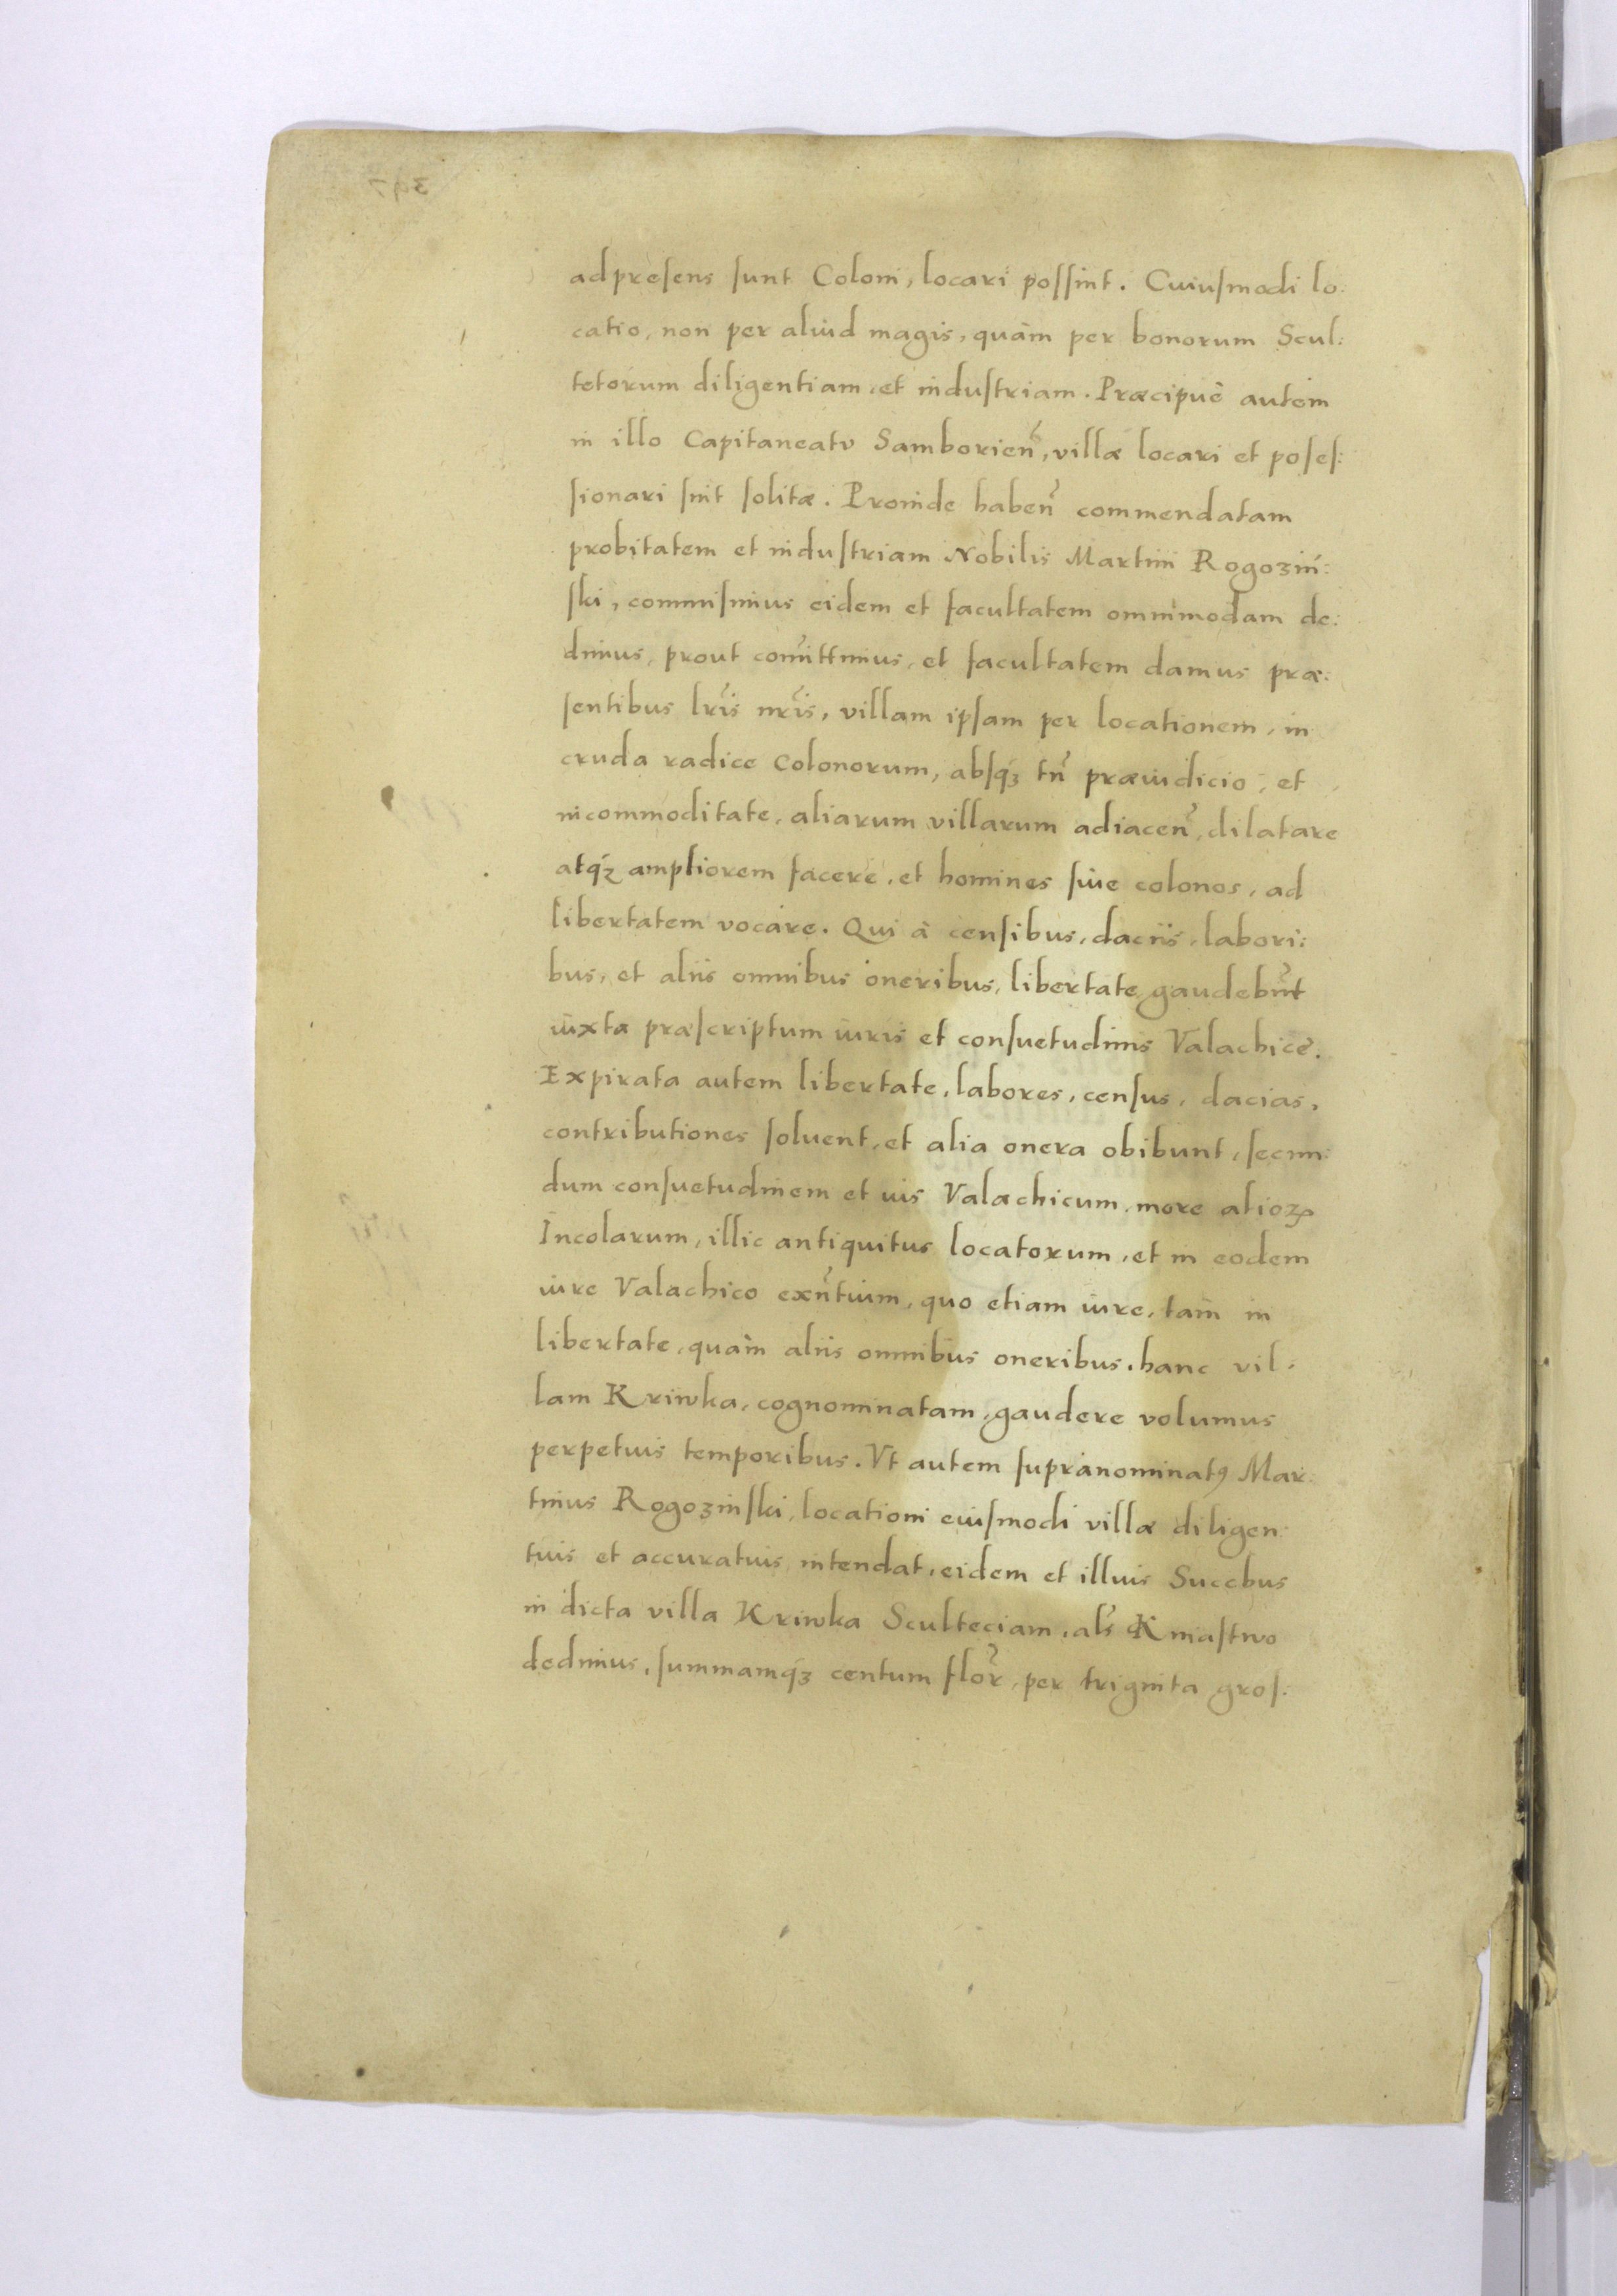 ad presens sunt Coloni, locari possint. Cuiusmodi lo:
catio, non per aliud magis, quàm per bonorum Scul:
tetorum diligentiam et industriam. Præcipuè autem
in illo Capitaneatu Samborien̄, villæ locari et poses:
sionari sint solitæ. Proinde haben̄ commendatam
probitatem et industriam Nobilis Martini Rogoziń:
ski, commisimus eidem et facultatem omnimodam de:
dimus, prout com̄ittimus, et facultatem damus præ:
sentibus lr̄is nr̄is, villam ipsam per locationem, in
cruda radice Colonorum, absq̧ tn̄ præiudicio, et
incommoditate, aliarum villarum adiacen̄, dilatare
atq̧ ampliorem facere, et homines siue colonos, ad
libertatem vocare. Qui à censibus, daciis, labori:
bus, et aliis omnibus oneribus, libertate gaudebūt
iuxta præscriptum iuris et consuetudinis Valachicę.
Expirata autem libertate, labores, census, dacias,
contributiones soluent, et alia onera obibunt, secun:
dum consuetudinem et ius Valachicum, more alioꝝ
Incolarum, illic antiquitus locatorum, et in eodem
iure Valachico exn̄tium, quo etiam iure, tam in
libertate, quàm aliis omnibus oneribus, hanc vil:
lam Kriwka, cognominatam, gaudere volumus
perpetuis temporibus. Vt autem supranominatꝰ Mar:
tinus Rogozinski, locationi eiusmodi villæ diligen:
tius et accuratius intendat, eidem et illius Succbus
in dicta villa Kriwka Sculteciam, als̄ Kniastwo
dedimus, summamq̧ centum flor̄, per triginta gros: